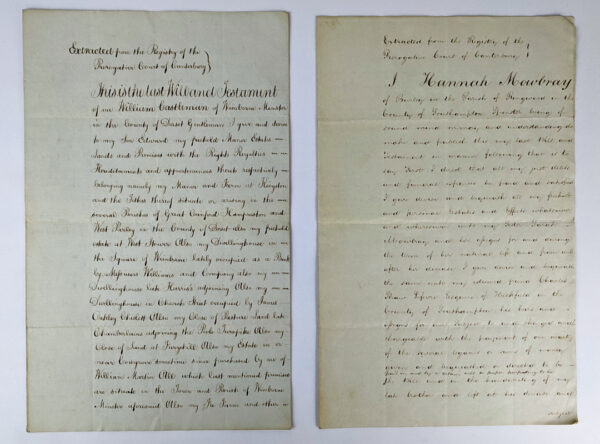 Extracted from the Registry of the
Prerogative Court of Canterbury
This is the last Will and Testament
of me William Castleman of Wimborne Minster
in the County of Dorset Gentleman I give and devise
to my Son Edward my freehold Manor Estate
Lands and Premises with the Rights Royalties
Hereditaments and appurtenances thereto respectively
belonging namely my Manor and Farm at Knighton
and the Tithes thereof situate or arising in the
several Parishes of Great Canford Hampreston and
West Parley in the County of Dorset also my freehold
estate at West Stower Also my Dwellinghouse in
the Square of Wimborne lately occupied as a Bank
by Messieurs Williams and Company also my
Dwellinghouse late Harris's adjoining Also my
Dwellinghouse in Church Street occupied by James
Oakley Chislett Also my Close of Pasture Land late
Chamberlains adjoining the Poole Turnpike Also my
Close of Land at Furzehill Also my Estate in or
near Cowgrove sometime since purchased by me of
William Martin All which last mentioned premises
are situate in the Town and Parish of Wimborne
Minster aforesaid Also my Farm and other
Extracted from the Registry of the
Prerogative Court of Canterbury
I Hannah Mowbray
of in the Parish of Ringwood in the
County of Southampton Spinster being of
sound mind memory and understanding do
make and publish this my last Will and
Testament in manner following that is to
say First I direct that all my just debts
and funeral expenses be paid and satisfied
I give devise and bequeath all my freehold
and personal Estates and Effects whatsoever
and wheresoever unto my Sister Sarah
Mowbray and her assigns for and during
the term of her natural life and from and
after her decease I give devise and bequeath
the same unto my esteemed friend Charles
Shaw Lefevre Esquire of Heckfield in the
County of Southampton his heirs and
assigns for ever Subject to and charged and
chargeable with the payment of one moiety
of the several legacies or sums of money
given and bequeathed or directed to be
paid in and by a certain
the Will and in the handwriting of my
late brother and left at his decease and
subject